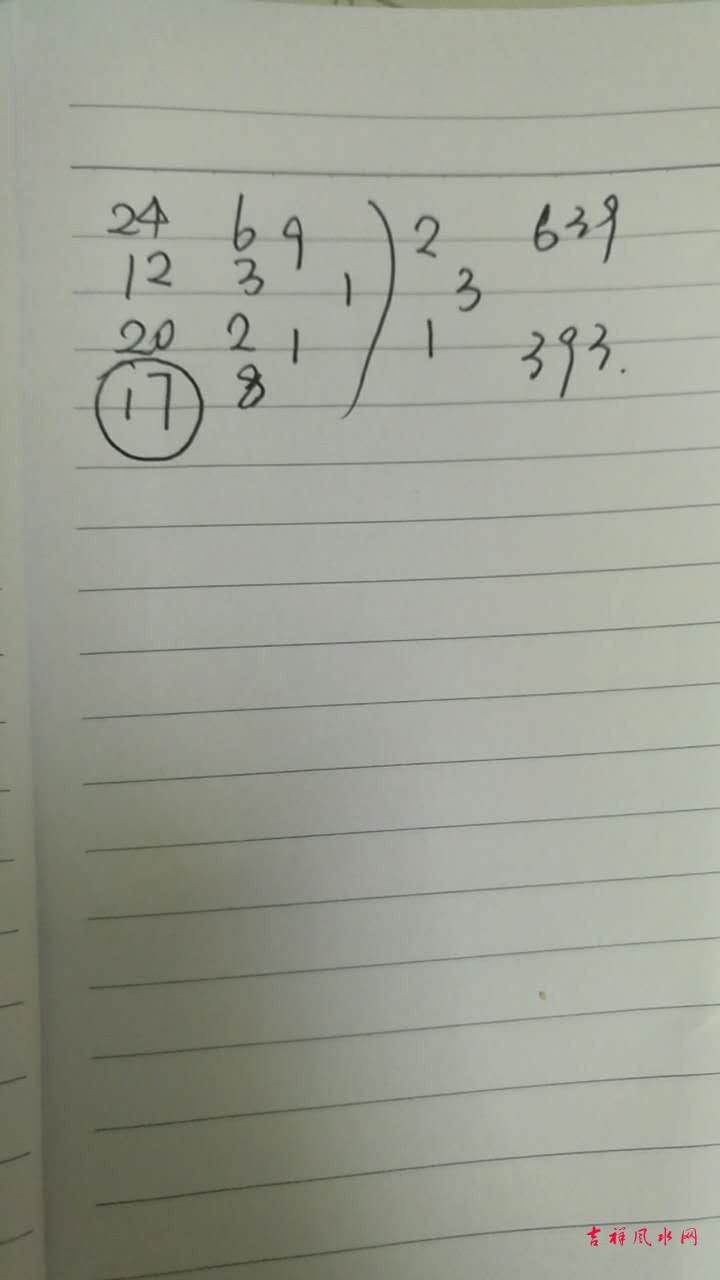 24 6 9 2 639
12 3 1 ) 3
20 2 1 1 393.
17 8
吉祥风水网